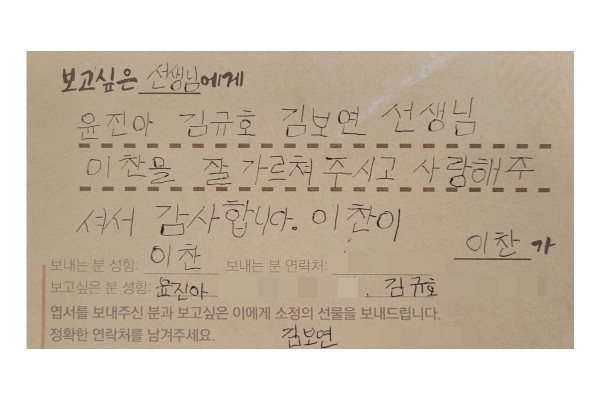 보고싶은 선생님에게
윤진아 김규호 김보연 선생님
이찬을 잘 가르쳐 주시고 사랑해 주
셔서 감사합니다. 이찬이
이찬 가
보내는 분 성함: 이찬 보내는 분 연락처:
보고싶은 분 성함: 윤진아 , 김규호
엽서를 보내주신 분과 보고싶은 이에게 소정의 선물을 보내드립니다.
정확한 연락처를 남겨주세요. 김보연